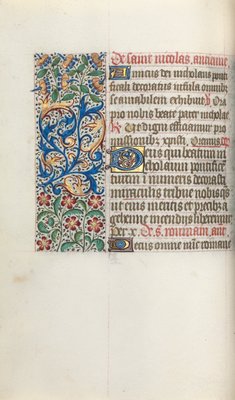 De saint nicolas, antienne
Amicus dei nicholaus ponti
ficali decoratus infula omnibꝫ
se amabilem exhibuit. Ora
pro nobis beate pater nicholae
Ut digni efficiamur pro
missionibꝫ xpisti. Oremus
Deus qui beatum ni
cholaum pontifice
tuum innumeris decorasti
miraculis tribue nobis qs
ut eius meritis et precibꝫ a
gehenne incendiis liberemur
Per x. De s. rommain, ant.
Decus omne